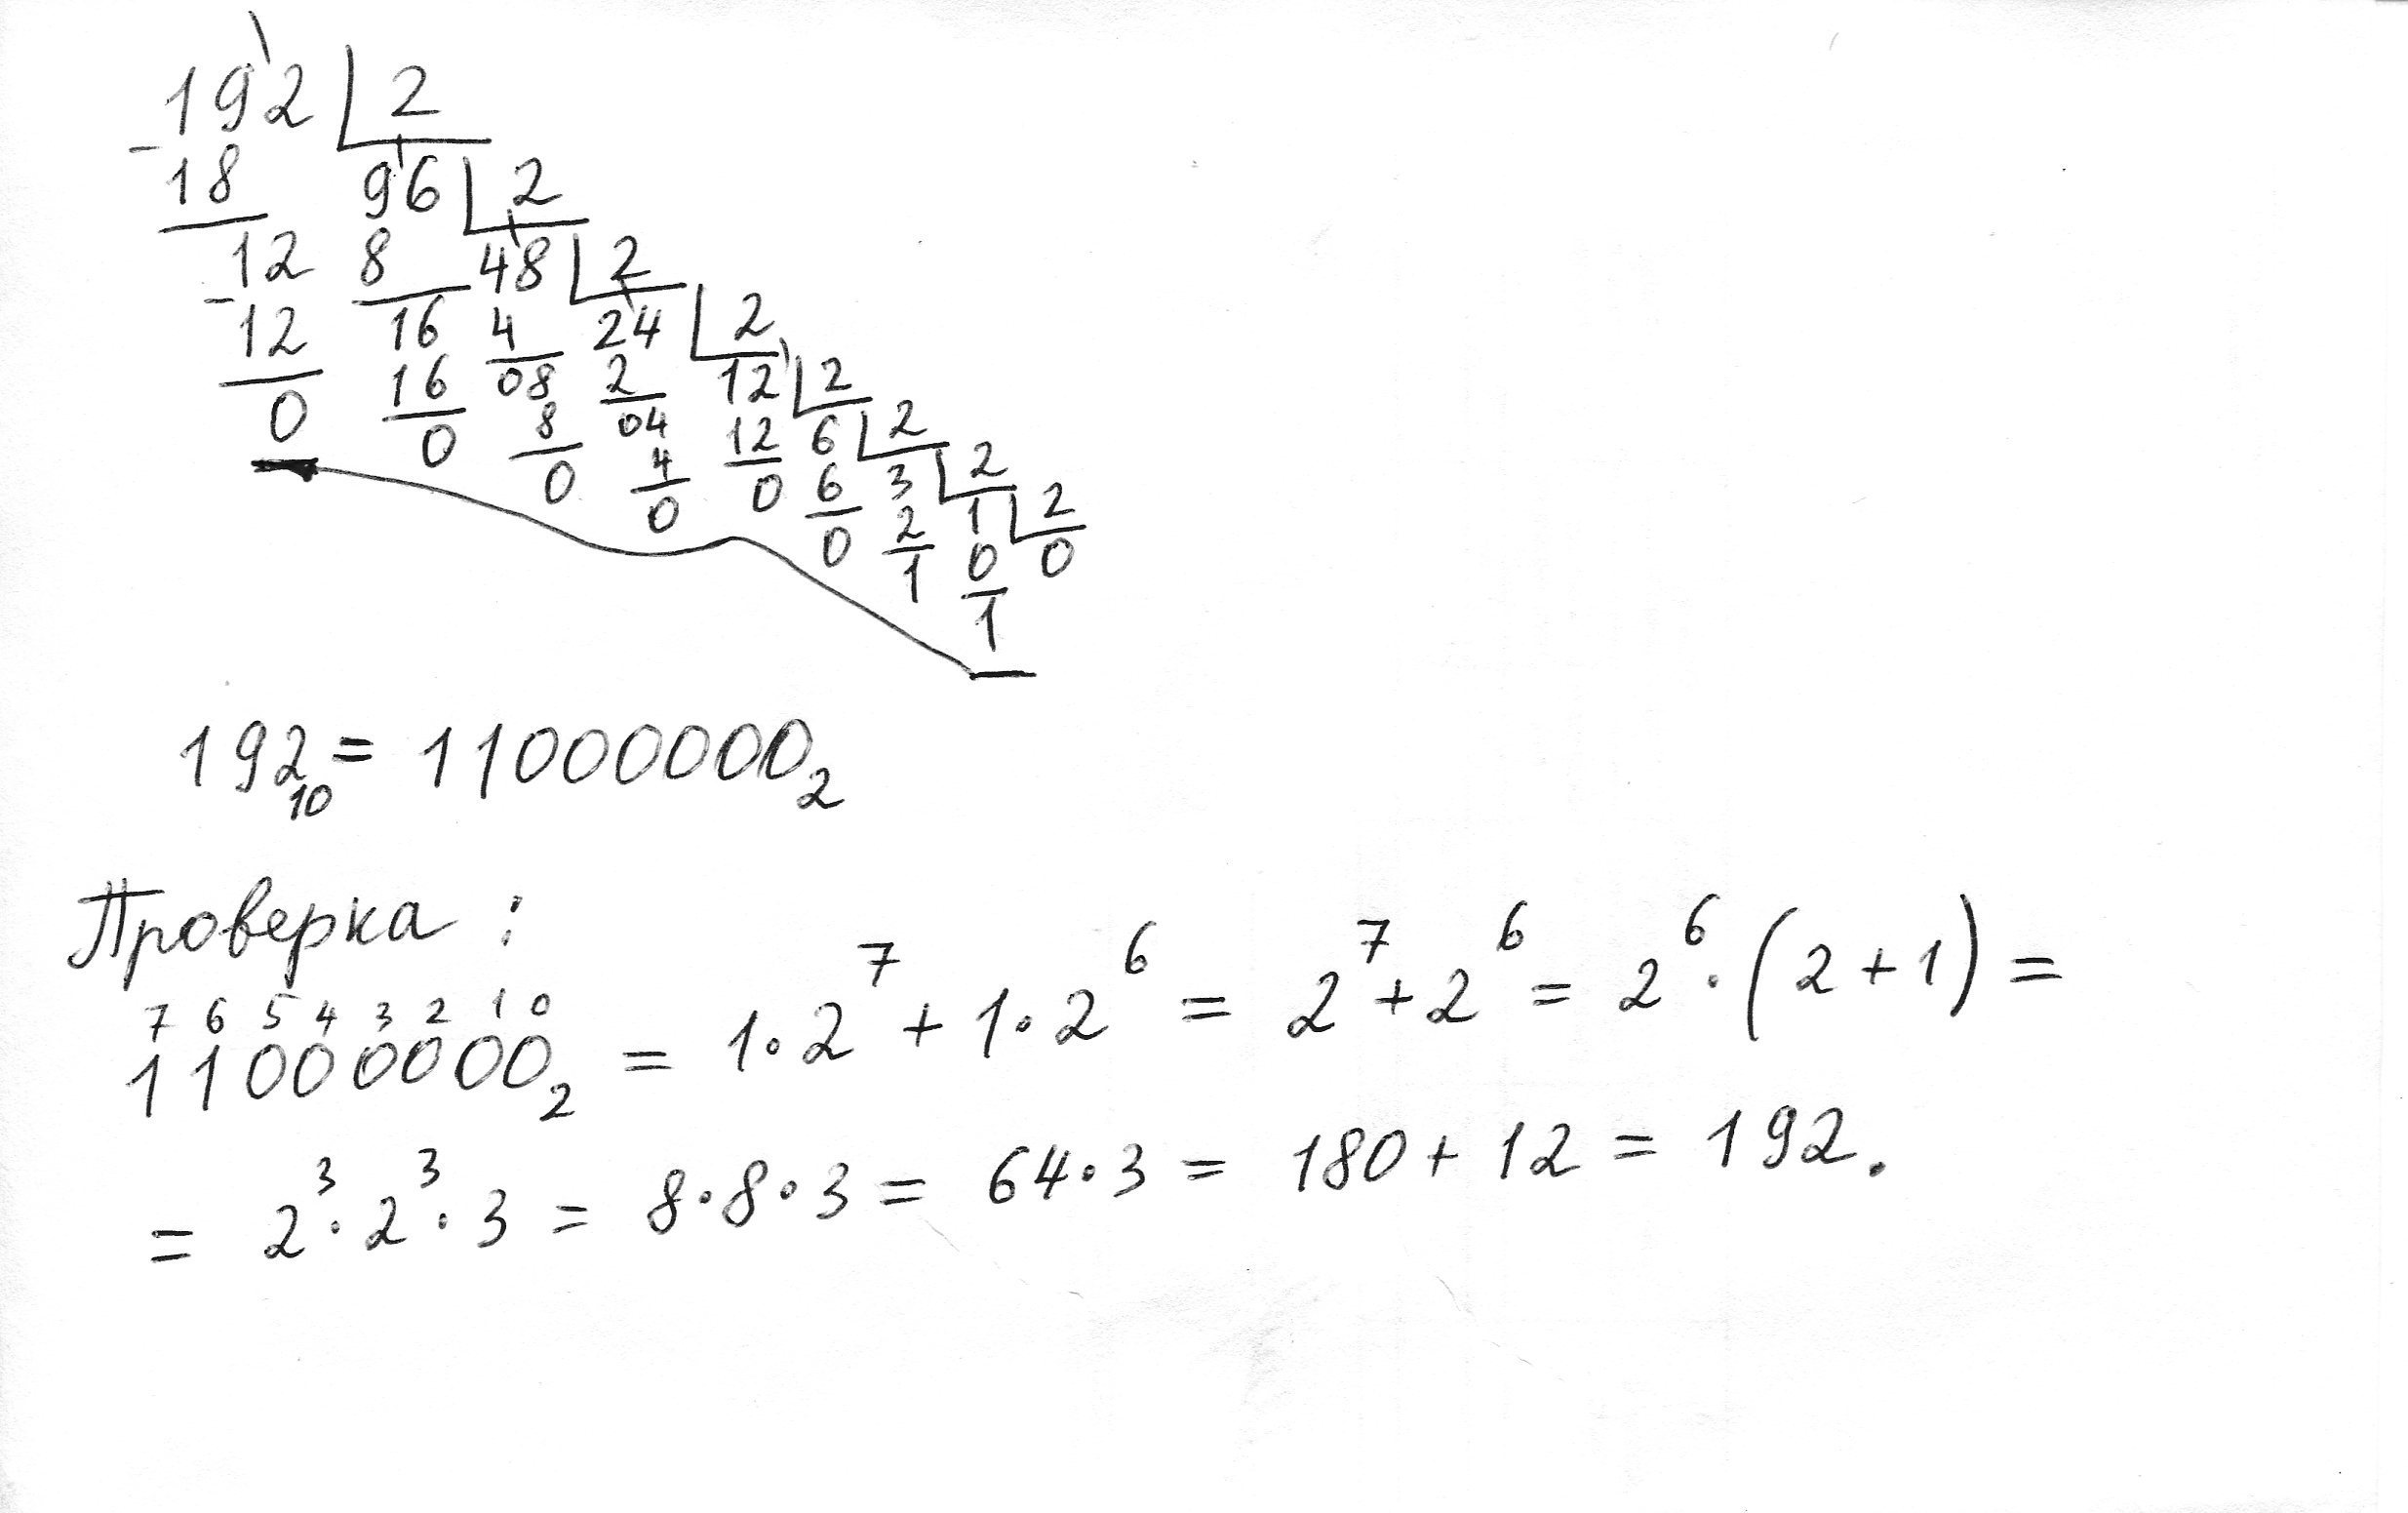 192 | 2
- 18 96 | 2
12 8 48 | 2
- 12 16 4 24 | 2
0 16 08 2 12 | 2
0 8 04 12 6 | 2
0 4 0 6 3 | 2
0 0 2 1 | 2
1 0 0
1
192₁₀ = 11000000₂
Проверка :
7 6 5 4 3 2 1 0
11000000₂ = 1·2⁷ + 1·2⁶ = 2⁷ + 2⁶ = 2⁶ · (2 + 1) =
= 2³ · 2³ · 3 = 8 · 8 · 3 = 64 · 3 = 180 + 12 = 192.